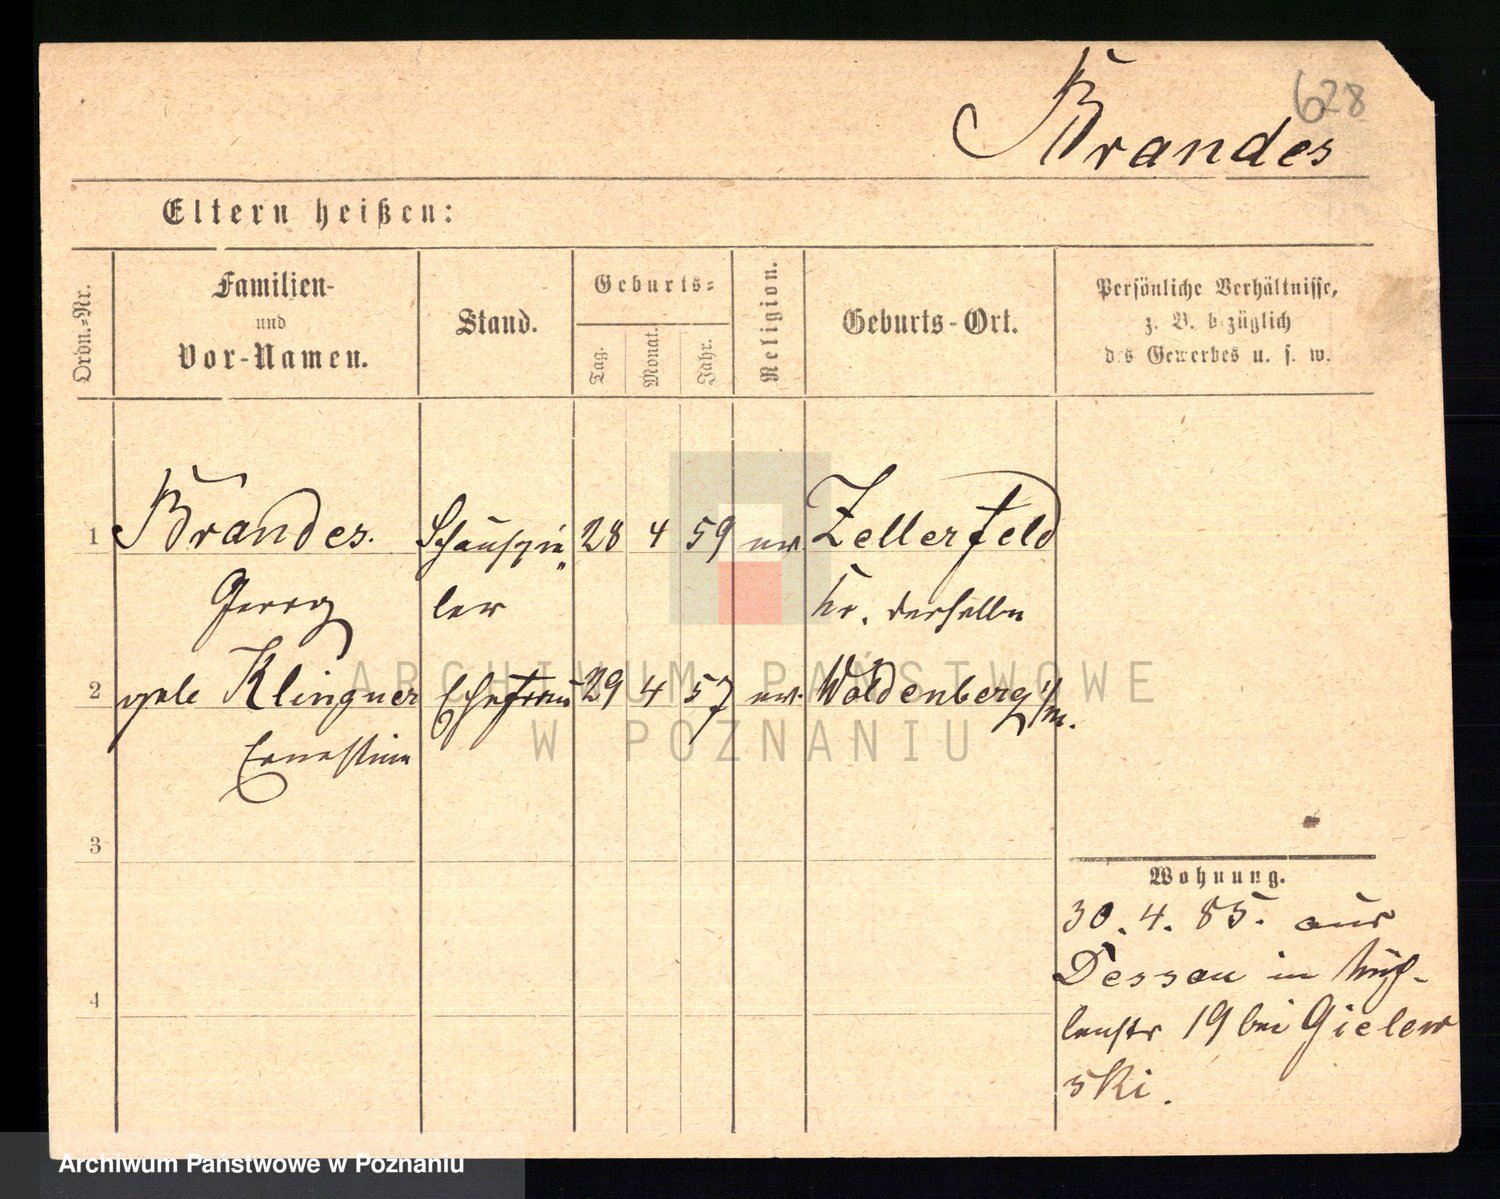 628
Brandes
Eltern heißen:
Ordn.-Nr.
Familien-
und
Vor-Namen.
Stand.
Geburts-
Tag.
Monat.
Jahr.
Religion.
Geburts-Ort.
Persönliche Verhältnisse,
z. B. bezüglich
des Gewerbes u. s. w.
1 Brandes. Schauspie„ 28 4 59 ev. Zellerfeld
Georg ler Kr. derselbe
2 geb Klingner Ehefrau 29 4 57 ev. Woldenberg i/m.
Ernestine
3
4
Wohnung.
30. 4. 85. aus
Dessau in Müh-
lenstr 19 bei Gielew
ski.
ARCHIWUM PAŃSTWOWE
W POZNANIU
Archiwum Państwowe w Poznaniu